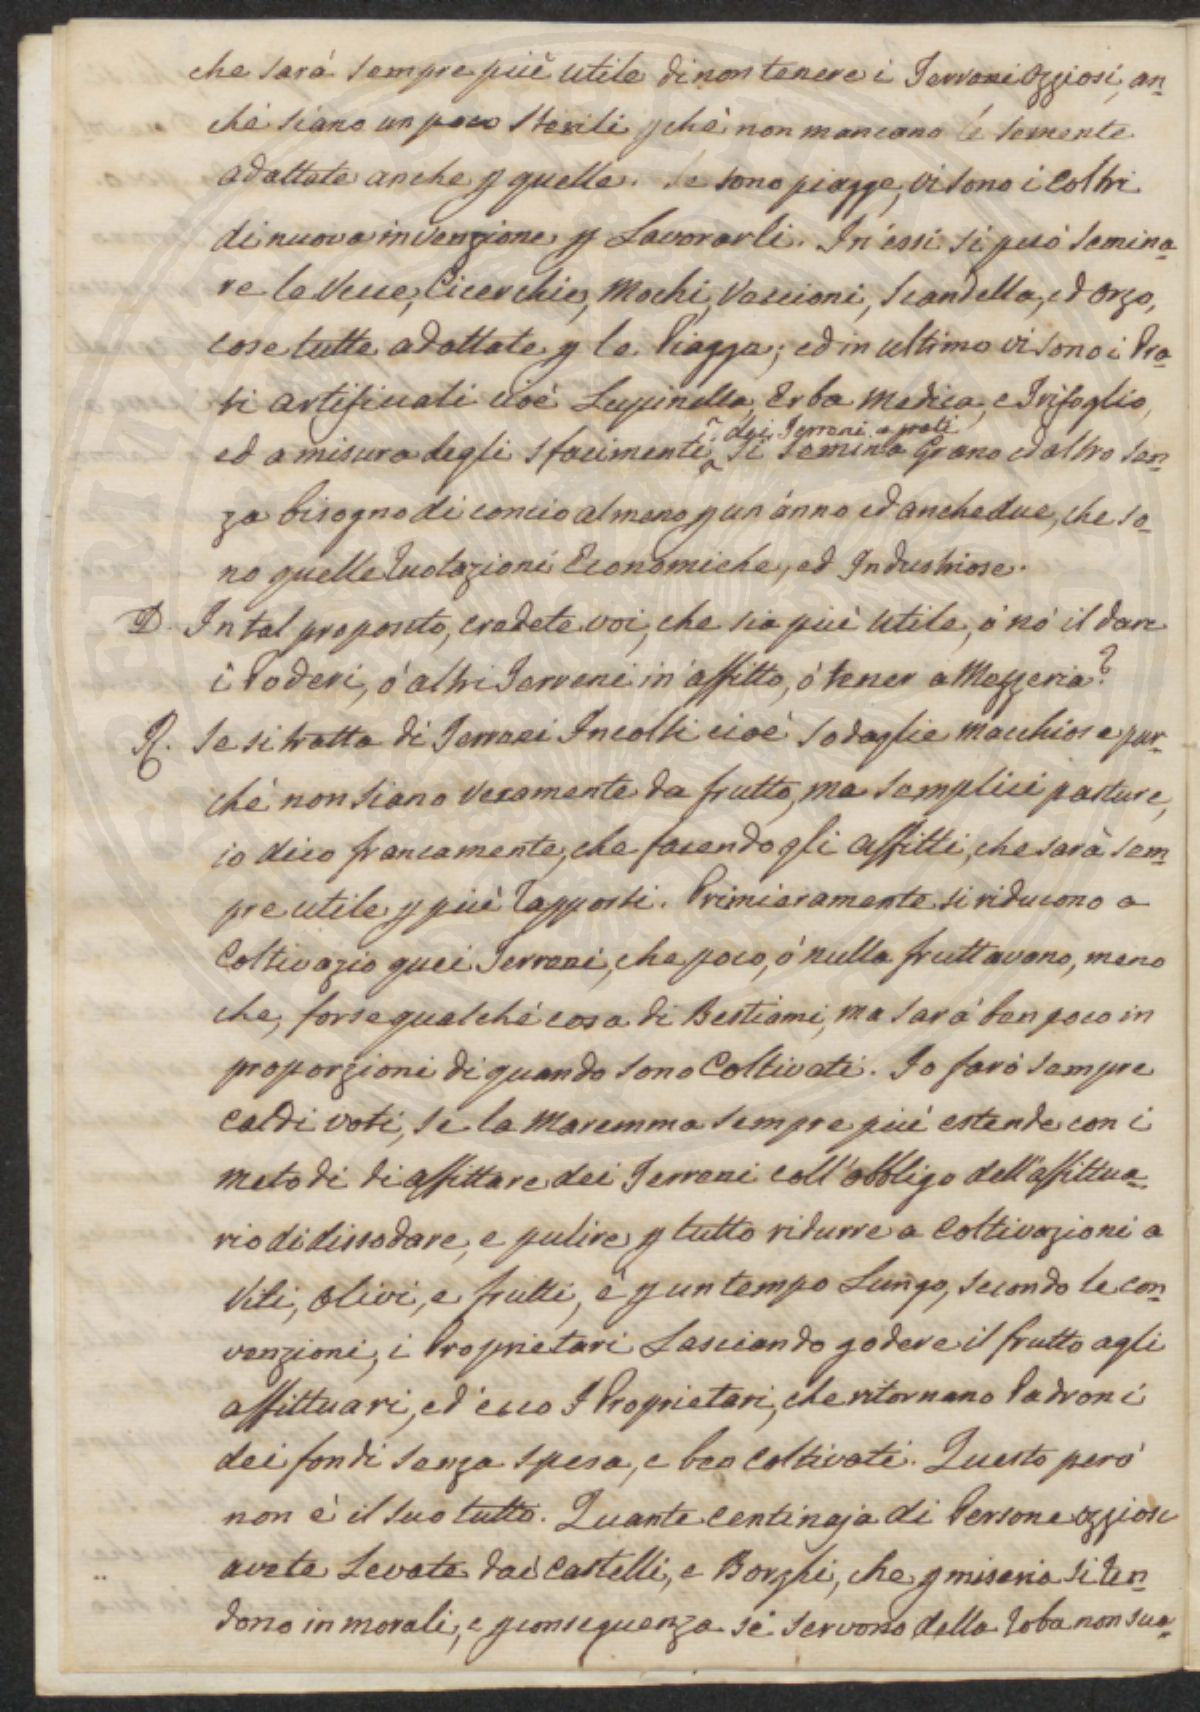 che sarà sempre più utile di non tenere i Terreni Oggiosi, an=
chè siano un poco sterili pchè non mancano le semente
adattate anche p quelle. Se sono piagge, vi sono i Coltri
di nuova invenzione p Lavorarli. In essi si può Semina=
re le Vecce, Cicerchie, Mochi, Vaccioni, Scandella, ed Orzo,
cose tutte adattate p le Piagga; ed in ultimo vi sono i Pra=
ti artificiali cioè Lupinella, Erba Medica, e Trifoglio,
dei Terreni a prati
ed a misura degli sfacimenti si semina Grano ed altro sen=
za bisogno di concio almeno p un ánno ed anche due, che so=
no quelle Ruotazioni Economiche, ed Industriose.
D. In tal proposito, credete voi, che sia più utile, ó nò il dare
i Poderi, ó altri Terreni in affitto, ó tener a Mezzeria?
R. Se si tratta di Terreni Incolti cioè Sodaglie Macchiose pur=
chè non siano veramente da frutto, ma semplici pasture,
io dico francamente, che facendo gli Affitti, che sarà sem=
pre utile p più Rapporti. Primieramente si riducono a
Coltivazio quei Terreni, che poco, ó nulla fruttavano, meno
che, forse qualchè cosa di Bestiami, ma sarà ben poco in
proporzioni di quando sono Coltivati. Io farò sempre
Caldi voti, se la Maremma sempre più estende con i
metodi di affittare dei Terreni coll'obbligo dell'affittua=
rio di dissodare, e pulire, p tutto ridurre a Coltivazioni a
Viti, Olivi, e frutti, e p un tempo Lungo, secondo le con=
venzioni, i Proprietari Lasciando godere il frutto agli
affittuari, ed ecco I Proprietari, che ritornano Padroni
dei fondi senza spesa, e ben Coltivati. Questo però
non è il suo tutto. Quante Centinaja di Persone Oggiose
avete Levate dai Castelli, e Borghi, che p miseria si ren=
dono in morali, e p conseguenza si servono della Roba non sua=